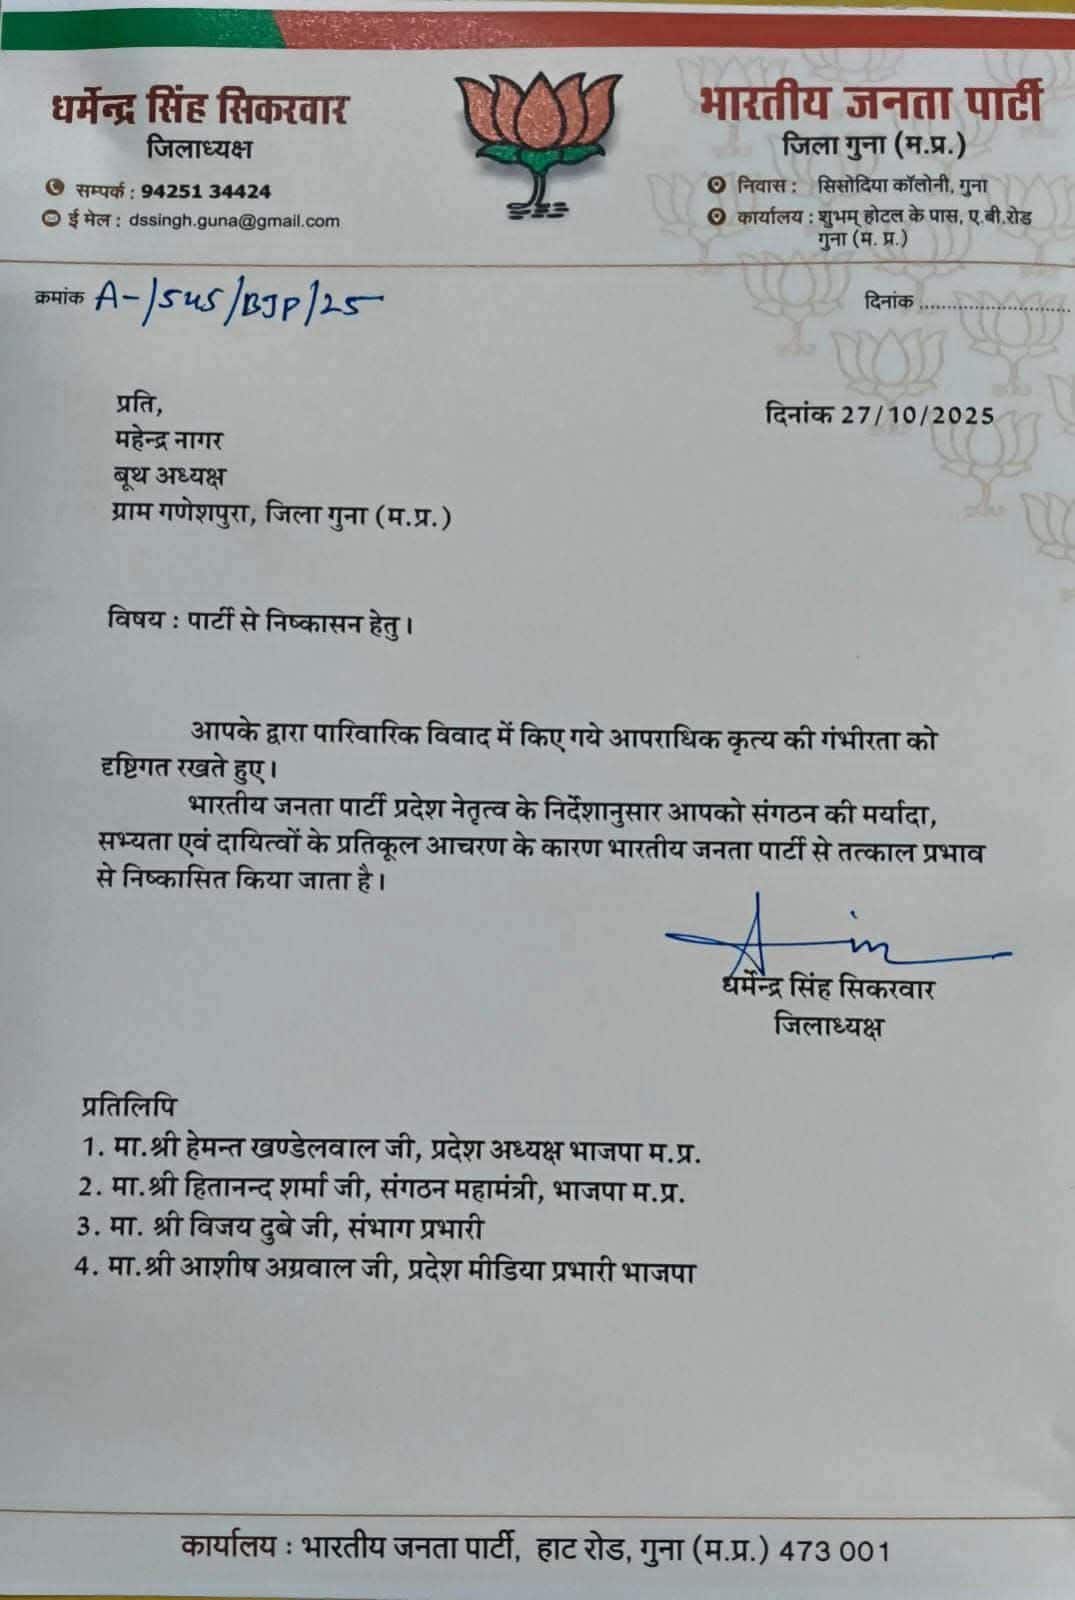 धर्मेन्द्र सिंह सिकरवार
जिलाध्यक्ष
सम्पर्क : 94251 34424
ई मेल : dssingh.guna@gmail.com
भारतीय जनता पार्टी
जिला गुना (म.प्र.)
निवास : सिसोदिया कॉलोनी, गुना
कार्यालय : शुभम् होटल के पास, ए.बी.रोड
गुना (म. प्र.)
क्रमांक A-/545/BJP/25
दिनांक ..............................
प्रति,
दिनांक 27/10/2025
महेन्द्र नागर
बूथ अध्यक्ष
ग्राम गणेशपुरा, जिला गुना (म.प्र.)
विषय : पार्टी से निष्कासन हेतु।
आपके द्वारा पारिवारिक विवाद में किए गये आपराधिक कृत्य की गंभीरता को
दृष्टिगत रखते हुए।
भारतीय जनता पार्टी प्रदेश नेतृत्व के निर्देशानुसार आपको संगठन की मर्यादा,
सभ्यता एवं दायित्वों के प्रतिकूल आचरण के कारण भारतीय जनता पार्टी से तत्काल प्रभाव
से निष्कासित किया जाता है।
धर्मेन्द्र सिंह सिकरवार
जिलाध्यक्ष
प्रतिलिपि
1. मा.श्री हेमन्त खण्डेलवाल जी, प्रदेश अध्यक्ष भाजपा म.प्र.
2. मा.श्री हितानन्द शर्मा जी, संगठन महामंत्री, भाजपा म.प्र.
3. मा. श्री विजय दुबे जी, संभाग प्रभारी
4. मा.श्री आशीष अग्रवाल जी, प्रदेश मीडिया प्रभारी भाजपा
कार्यालय : भारतीय जनता पार्टी, हाट रोड, गुना (म.प्र.) 473 001